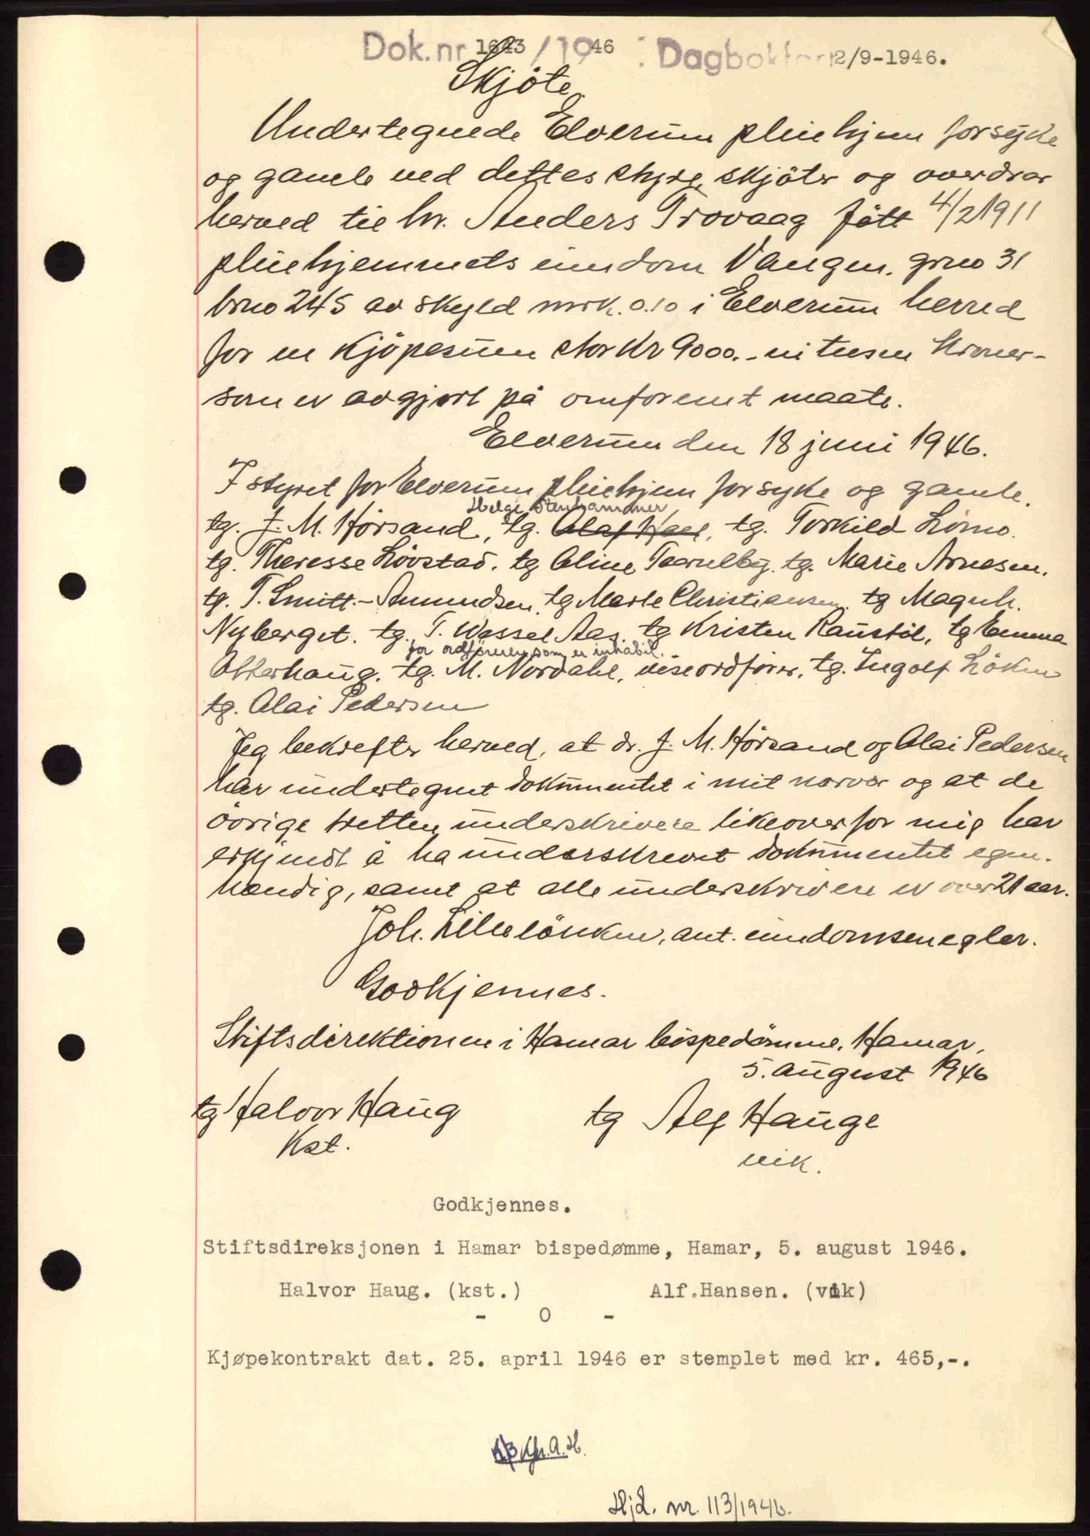 Dok.nr 1643/1946 Dagbokført 2/9-1946.
Skjöte.
Undertegnede Elverum pleiehjem for syke
og gamle ved dettes styre, skjöter og overdrar
herved til hr. Anders Trovaag född 4/2 1911
pleiehjemmets eiendom Vangen, grno 31
brno 245 av skyld mrk. 0.10 i Elverum herred
for en kjöpesum stor Kr 9000.- ni tusen kroner-
som er avgjort på omforenet maate.
Elverum den 18 juni 1946.
I styret for Elverum pleiehjem for syke og gamle.
Helge Stenhammer
tg. J. M. Hörsand, tg. Olaf Hoel, tg. Torkild Lömo.
tg. Theresse Lövstad. tg Oline Taarnlby. tg. Marie Arnesen.
tg. T. Smitt-Amundsen. tg Marte Christiansen. tg Magnh.
Nyberget. tg. T. Wessel Aas. tg Kristen Raustöl, tg Emma
for ordföreren som er inhabil.
Otterhaug. tg. M. Nordahl, viseordförer. tg. Ingolf Löken
tg. Olai Pedersen
Jeg bekrefter herved, at dr. J. M. Hörsand og Olai Pedersen
har undertegnet dokumentet i mit nærvær og at de
övrige tretten underskrivere likeoverfor mig har
erkjendt å ha underskrevet dokumentet egen-
hendig, samt at alle underskrivere er over 21 aar.
Joh. Lillelöken, aut. eiendomsmegler.
Godkjennes.
Stiftsdirektionen i Hamar bispedömme, Hamar,
5. august 1946
tg Halvor Haug tg Alf Hauge
Kst. vik.
Godkjennes.
Stiftsdireksjonen i Hamar bispedømme, Hamar, 5. august 1946.
Halvor Haug. (kst.) Alf.Hansen. (vik)
- O -
Kjøpekontrakt dat. 25. april 1946 er stemplet med kr. 465,-.
Hjl. nr. 113/1946.